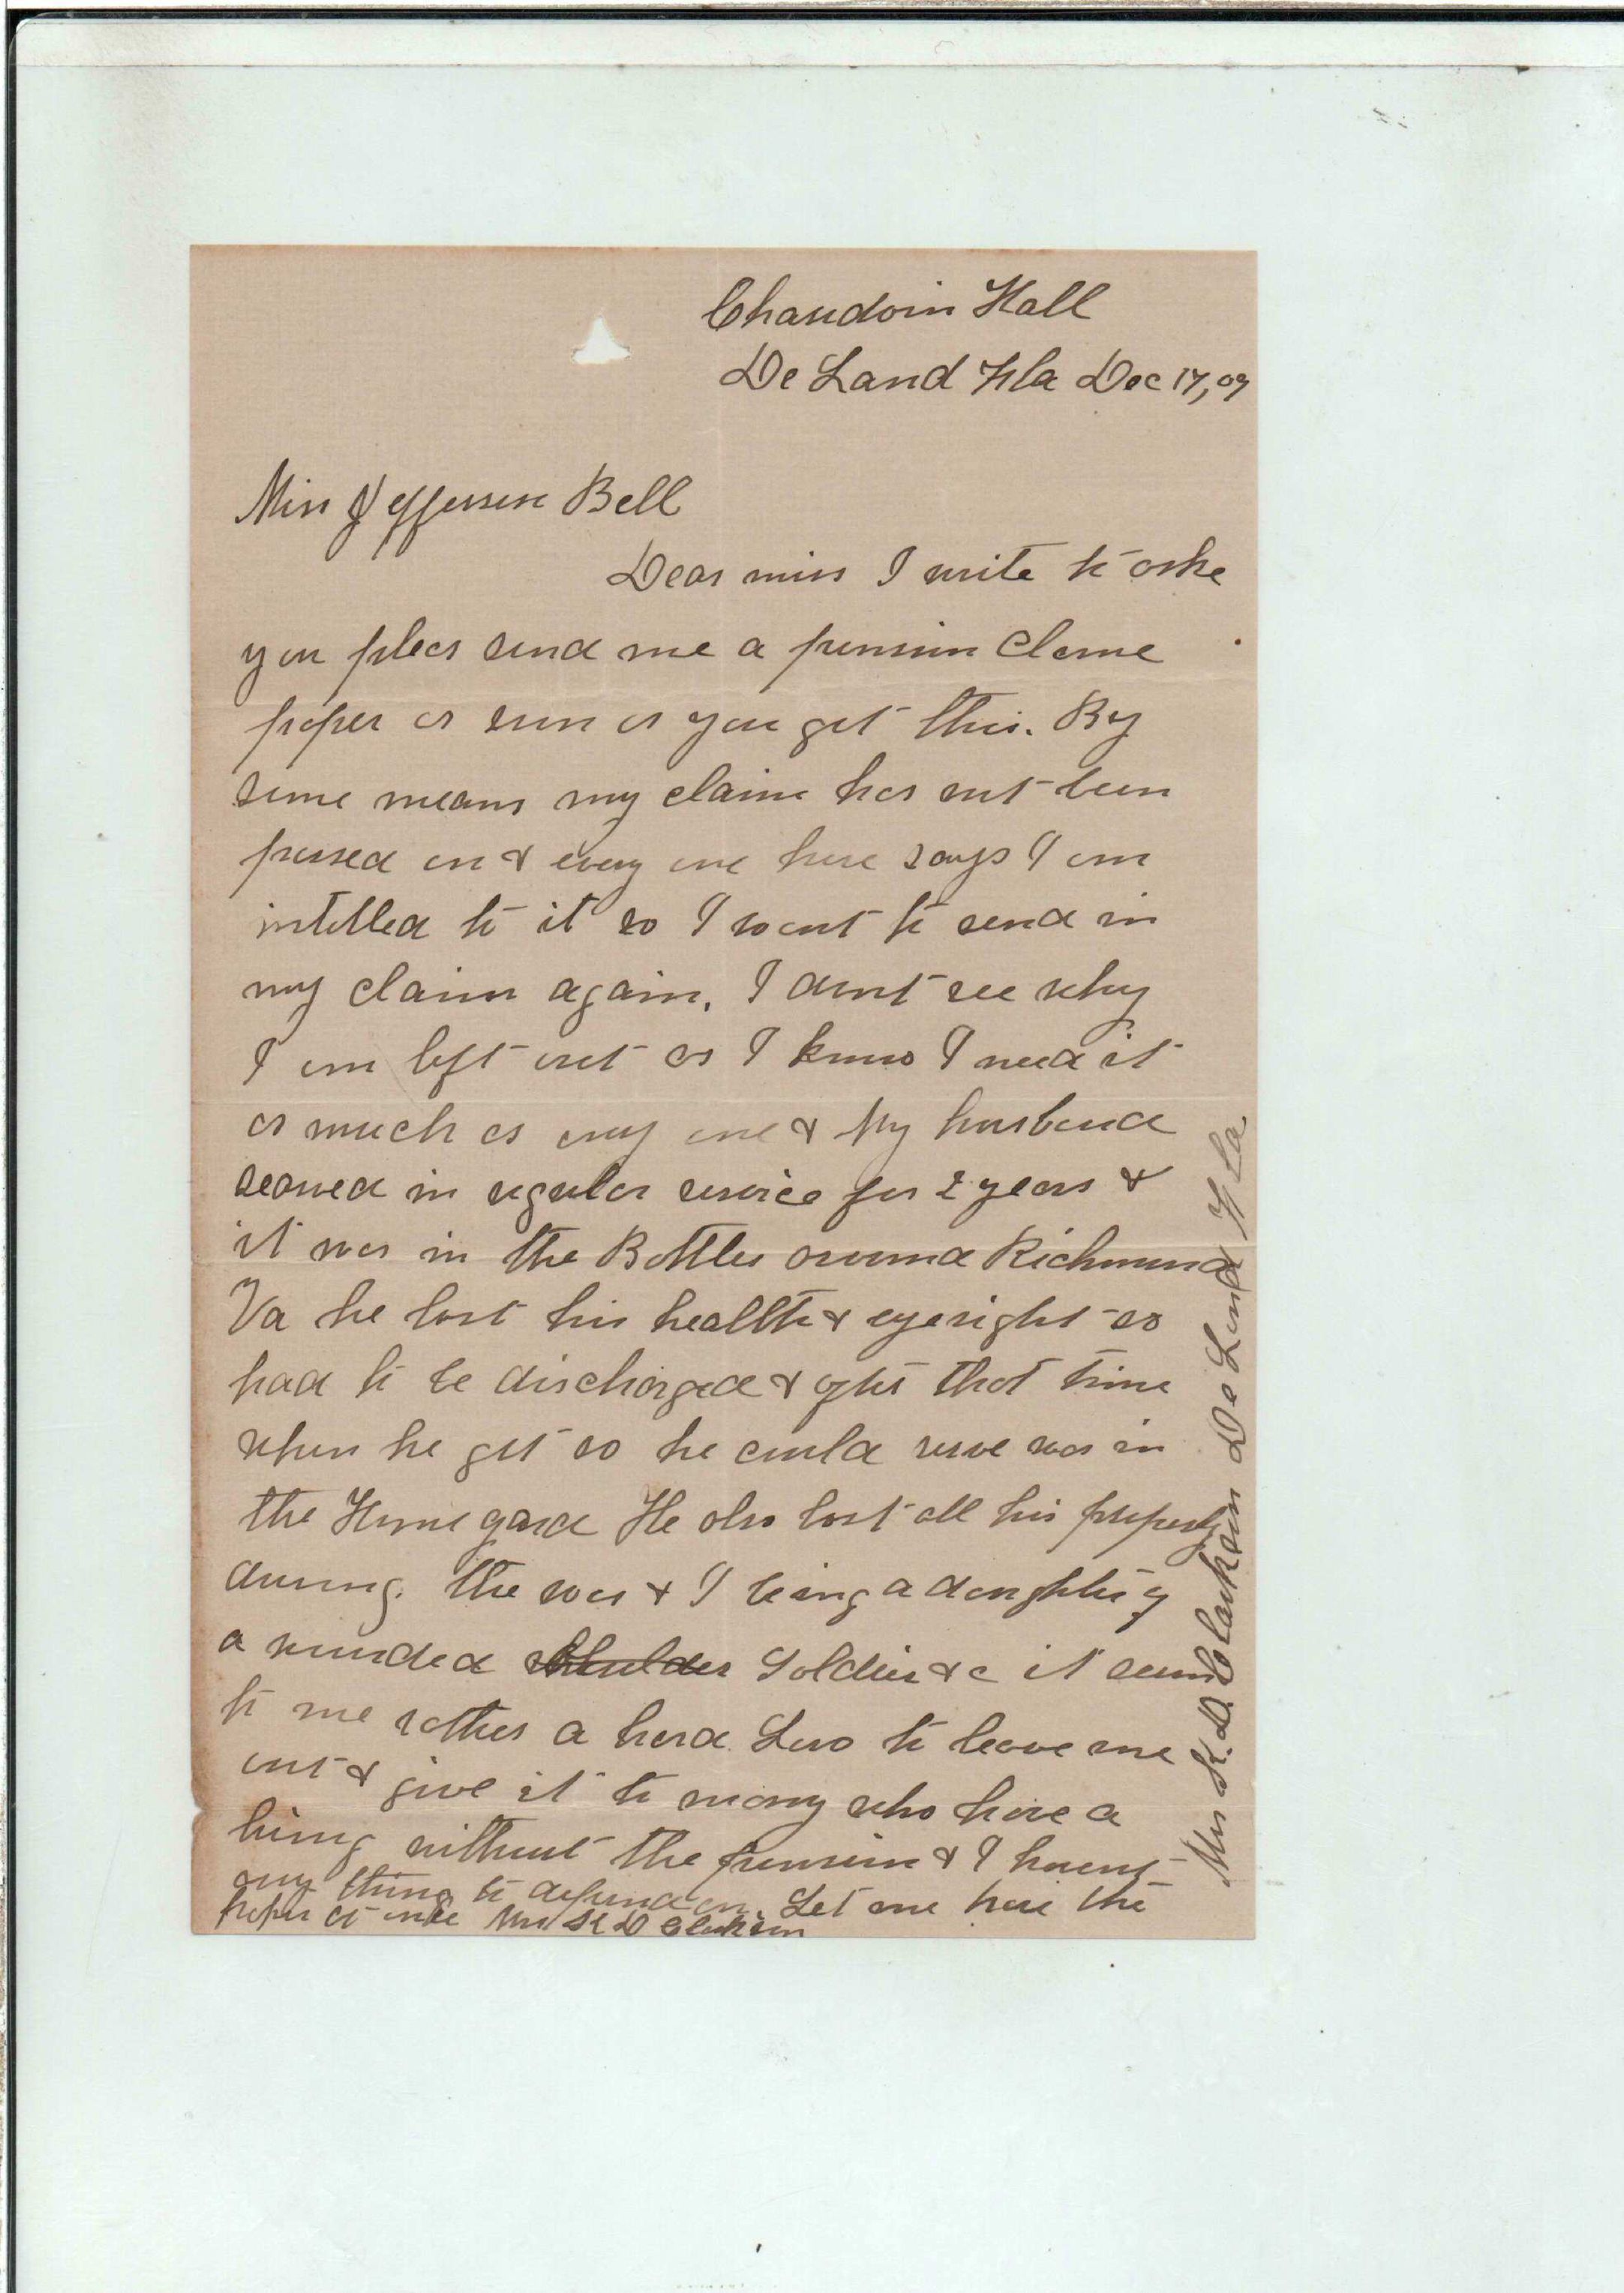 Chaudoin Hall
De Land Fla Dec 17, 09
Miss Jefferson Bell
Dear miss I write to aske
you pleas send me a pension clame
paper as soon as you get this. By
some means my claim has not been
passed on & every one here says I am
intitled to it so I want to send in
my claim again. I dont see why
I am left out as I know I need it
as much as any one & My husband
searved in regular service for 2 years &
it was in the Battles around Richmond
Va he lost his health & eyesight so
had to be discharged & after that time
when he got so he could serve was in
the Home gard He also lost all his property
during. the war & I being a daughter of
a wunded Soldier & c it seems
to me rather a hard Law to leave me
out & give it to many who have a
living without the pension & I havent
any thing to depend on. Let me have the
paper at once Mrs K D Clarkson
Mrs K. D. Clarkson De Land Fla